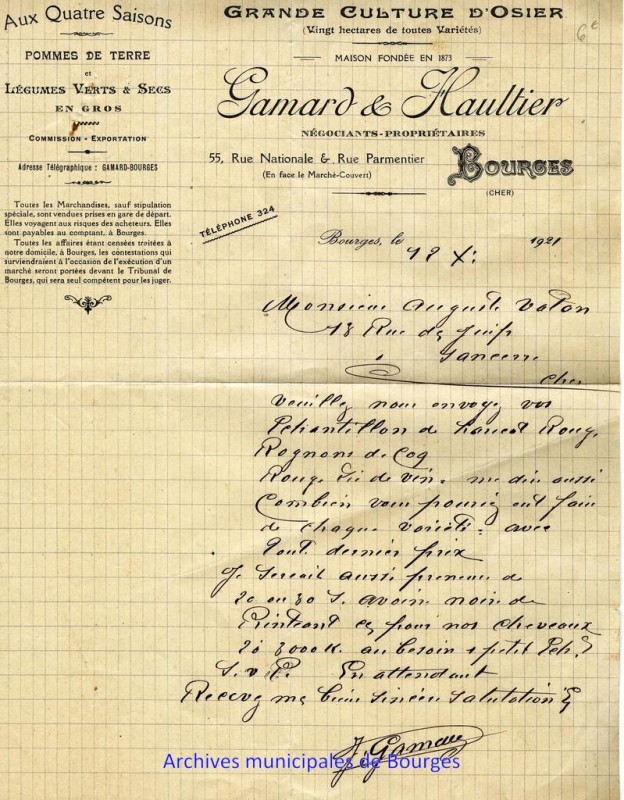 Aux Quatre Saisons
POMMES DE TERRE
et
LÉGUMES VERTS & SECS
EN GROS
COMMISSION - EXPORTATION
Adresse Télégraphique : GAMARD-BOURGES
Toutes les Marchandises, sauf stipulation
spéciale, sont vendues prises en gare de départ.
Elles voyagent aux risques des acheteurs. Elles
sont payables au comptant, à Bourges.
Toutes les affaires étant censées traitées à
notre domicile, à Bourges, les contestations qui
surviendraient à l'occasion de l'exécution d'un
marché seront portées devant le Tribunal de
Bourges, qui sera seul compétent pour les juger.
GRANDE CULTURE D'OSIER
(Vingt hectares de toutes Variétés)
6e
MAISON FONDÉE EN 1873
Gamard & Haultier
NÉGOCIANTS-PROPRIÉTAIRES
55, Rue Nationale & Rue Parmentier
(En face le Marché-Couvert)
BOURGES
(CHER)
TÉLÉPHONE 324
Bourges, le 1921
Monsieur Auguste
18 Rue des Juifs
à Sancerre
Cher
Veuillez nous envoyez vos
Echantillon de Rouge
Rognons de Coq
Rouge Lie de vin me dire aussi
Combien vous pouriez ent faire
de chaque voriété avec
Tout dernier prix
Je Sereait aussi preneur de
20 ou 30 S. avoine noir de
pour nos cheveaux
3000 K. au besoin + petit Ech.
S.v.P. En attendant
Recevez mes bien Sincère Salutation
J. Gamard
Archives municipales de Bourges